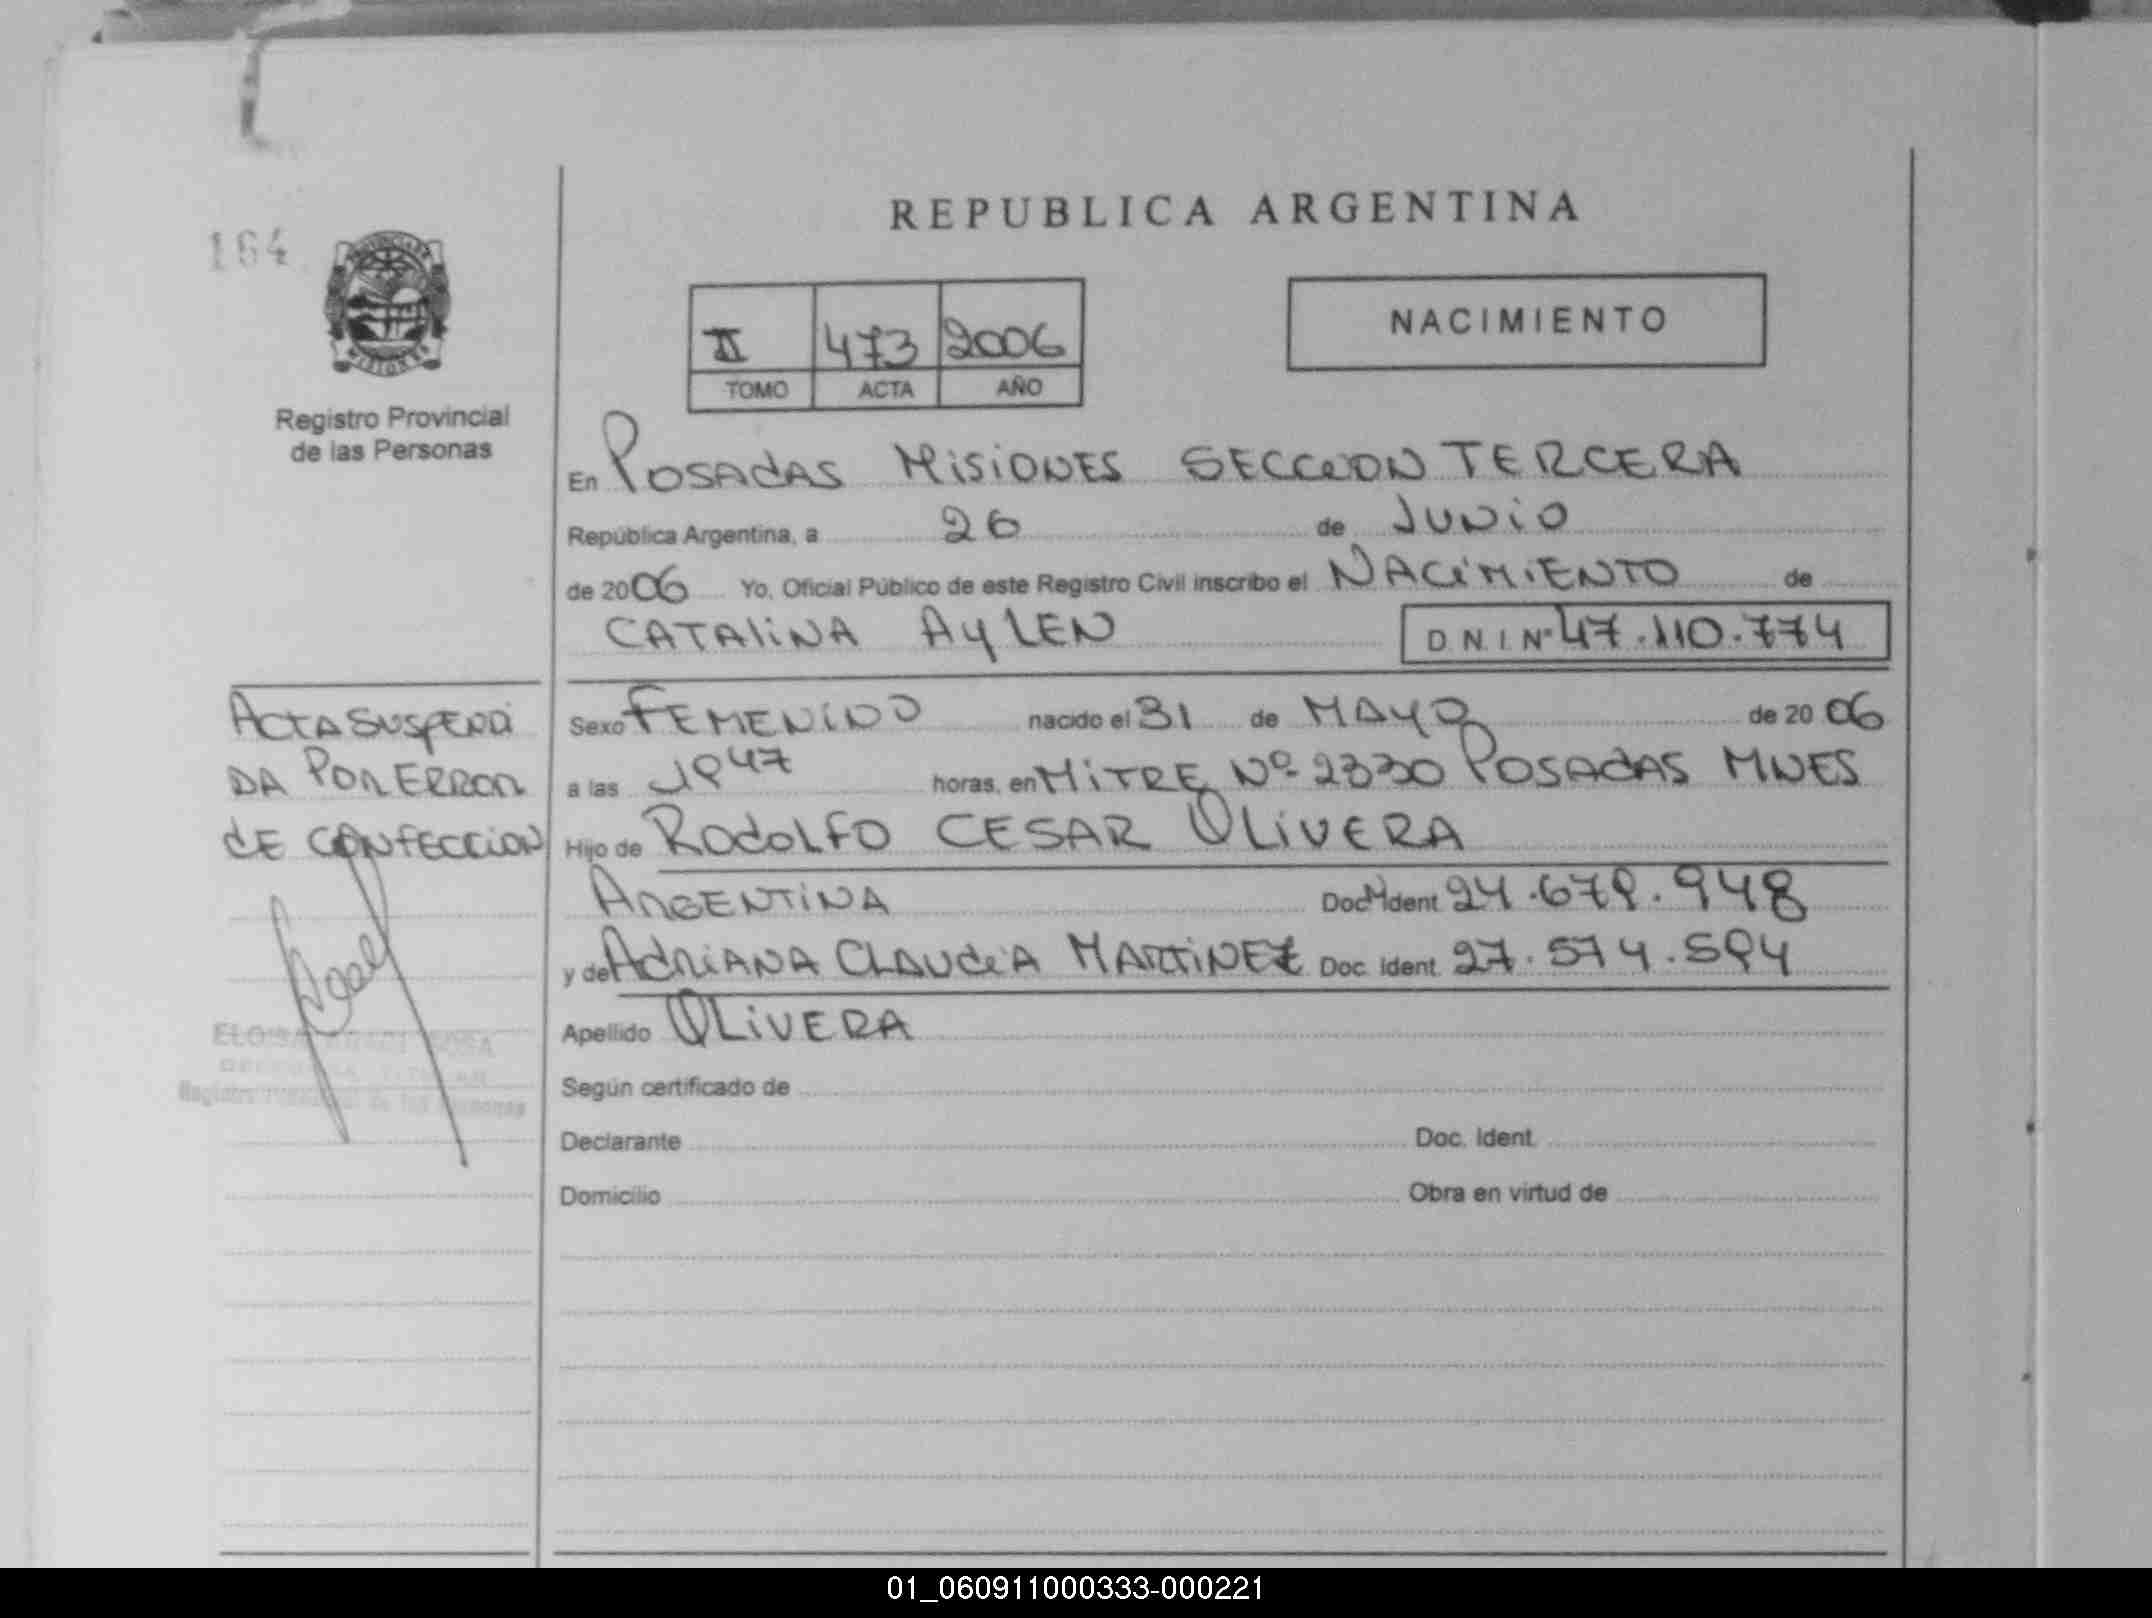 REPUBLICA ARGENTINA
164
II 473 2006
TOMO ACTA AÑO
NACIMIENTO
Registro Provincial
de las Personas
En POSADAS MISIONES SECCION TERCERA
República Argentina, a 26 de JUNIO
de 2006 Yo, Oficial Público de este Registro Civil inscribo el NACIMIENTO de
CATALINA AYLEN D.N.I. Nº 47.110.774
ACTA SUSPENDI
DA POR ERROR
DE CONFECCION
Sexo FEMENINO nacido el 31 de MAYO de 2006
a las 1947 horas, en MITRE Nº 2330 POSADAS MNES
Hijo de RODOLFO CESAR OLIVERA
ARGENTINA Doc. Ident. 24.679.948
y de ADRIANA CLAUDIA MARTINEZ Doc. Ident. 27.574.594
Apellido OLIVERA
Según certificado de
Declarante Doc. Ident.
Domicilio Obra en virtud de
ELOISA SOSA
Registro Provincial de las Personas
01_060911000333-000221